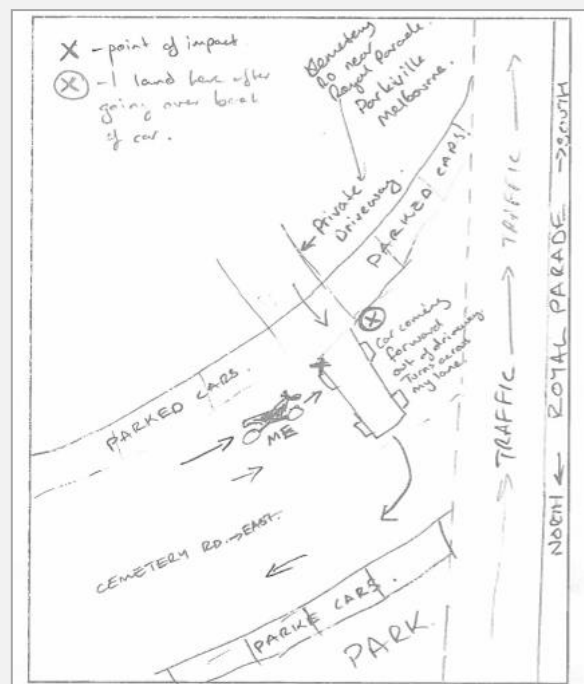 X - point of impact
ⓧ - I land here after
going over boot
of car.
Cemetery
RD near
Royal Parade.
Parkville
Melbourne.
Private
Driveway.
PARKED CARS!
Car coming
forward
out of driveway.
Turns across
my lane!
PARKED CARS.
ME
CEMETERY RD. → EAST.
PARKE CARS.
PARK
TRAFFIC → TRAFFIC
NORTH ← ROYAL PARADE → SOUTH